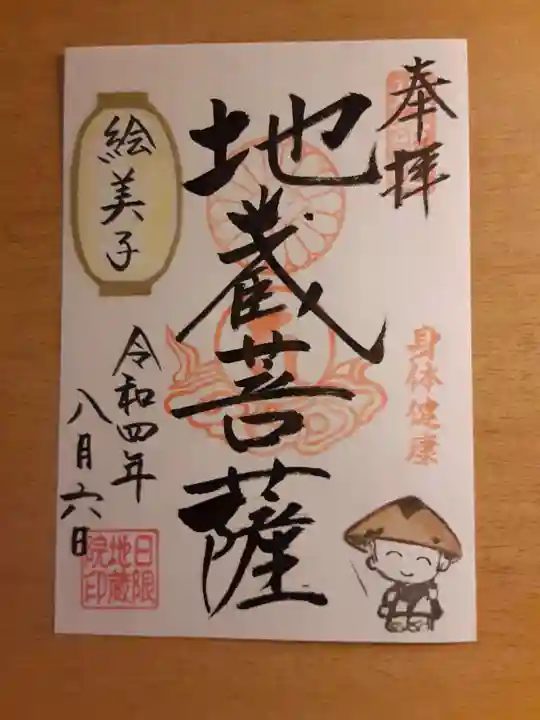 奉拝
身体健康
地蔵菩薩
絵美子
令和四年
八月六日
日限
地蔵
院印